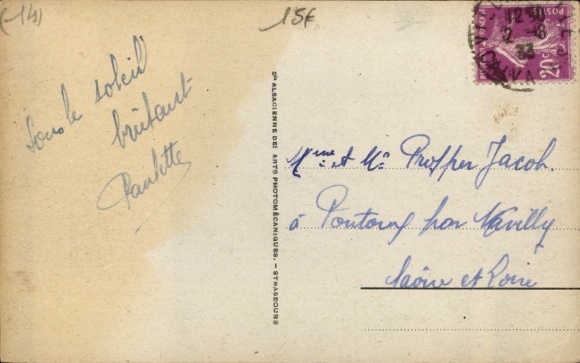 (14)
15F
sous le soleil
brûlant
Paulette
Cie ALSACIENNE DES ARTS PHOTOMÉCANIQUES. - STRASBOURG
POSTES
20c
12 30
2 -8
33
Mme et Mr Prosper Jacob.
à Pontoux par Navilly
Saône et Loire